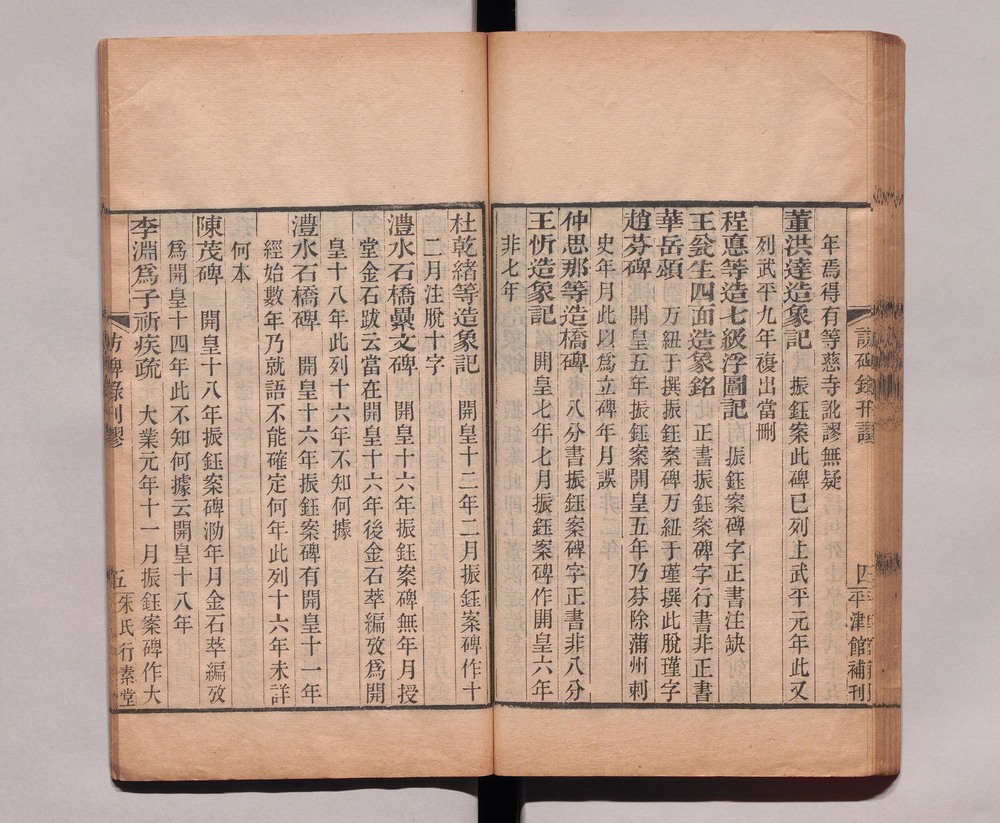 年焉得有等慈寺訛謬無疑
董洪達造象記　振鈺案此碑已列上武平元年此又
列武平九年複出當刪
程悳等造七級浮圖記　振鈺案碑字正書注缺
王㚬生四面造象銘　正書振鈺案碑字行書非正書
華岳頌　万紐于撰振鈺案碑万紐于瑾撰此脫瑾字
趙芬碑　開皇五年振鈺案開皇五年乃芬除蒲州刺
史年月此以爲立碑年月誤
仲思那等造橋碑　八分書振鈺案碑字正書非八分
王忻造象記　開皇七年七月振鈺案碑作開皇六年
非七年
訪碑錄刊謬
四
平津館補刊
杜乾緒等造象記　開皇十二年二月振鈺案碑作十
二月注脫十字
澧水石橋纍文碑　開皇十六年振鈺案碑無年月授
堂金石跋云當在開皇十六年後金石萃編攷爲開
皇十八年此列十六年不知何據
澧水石橋碑　開皇十六年振鈺案碑有開皇十一年
經始數年乃就語不能確定何年此列十六年未詳
何本
陳茂碑　開皇十八年振鈺案碑泐年月金石萃編攷
爲開皇十四年此不知何據云開皇十八年
李淵爲子祈疾疏　大業元年十一月振鈺案碑作大
訪碑錄刊謬
五
朱氏行素堂